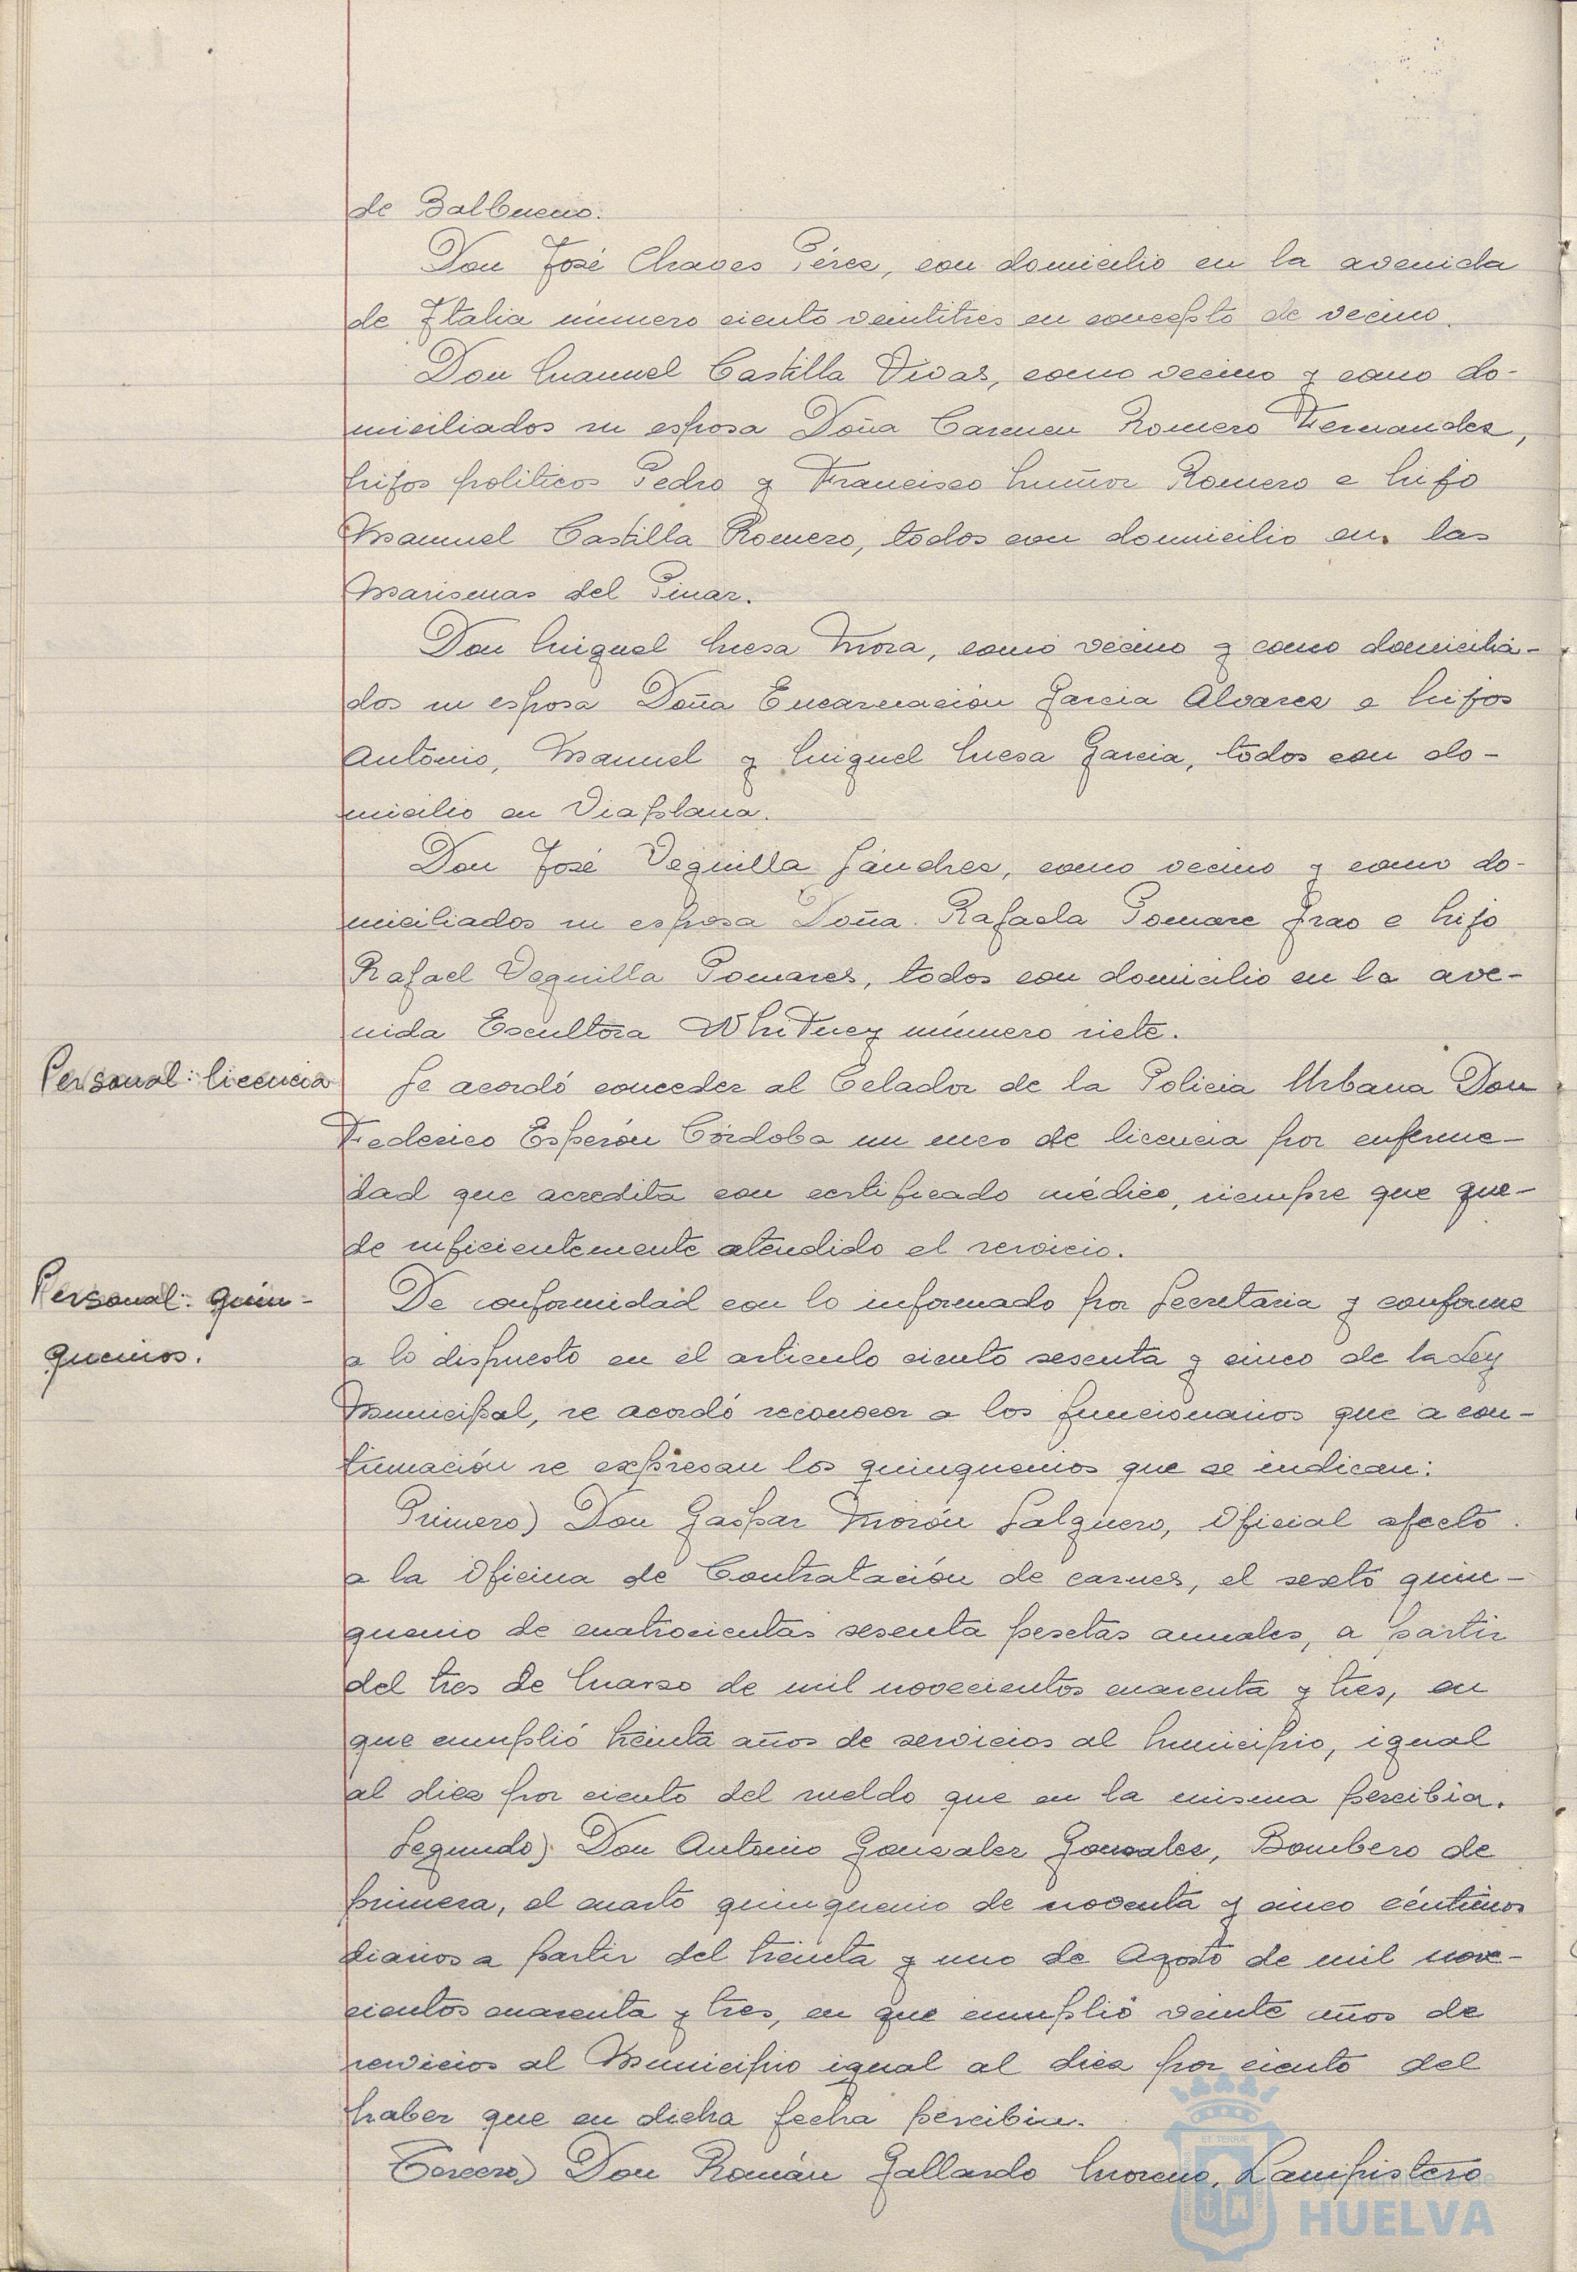 de Balbueno.
Don José Chaves Pérez, con domicilio en la avenida
de Italia número ciento veintitres en concepto de vecino.
Don Manuel Castilla Vivas, como vecino y como do-
miciliados su esposa Doña Carmen Romero Fernandez,
hijos politicos Pedro y Francisco Muñoz Romero e hijo
Manuel Castilla Romero, todos con domicilio en las
Marismas del Pinar.
Don Miguel Mesa Mora, como vecino y como domicilia-
dos su esposa Doña Encarnación Garcia Alvarez e hijos
Antonio, Manuel y Miguel Mesa Garcia, todos con do-
micilio en Viaplana.
Don José Veguilla Sánchez, como vecino y como do-
miciliados su esposa Doña Rafaela Pomare Grao e hijo
Rafael Veguilla Pomares, todos con domicilio en la ave-
nida Escultora Whitney número siete.
Personal: licencia
Se acordó conceder al Celador de la Policia Urbana Don
Federico Esperón Córdoba un mes de licencia por enferme-
dad que acredita con certificado médico, siempre que que-
de suficientemente atendido el servicio.
Personal: quin-
quenios.
De conformidad con lo informado por Secretaria y conforme
a lo dispuesto en el articulo ciento sesenta y cinco de la Ley
Municipal, se acordó reconocer a los funcionarios que a con-
tinuación se expresan los quinquenios que se indican:
Primero) Don Gaspar Morón Salguero, Oficial afecto
a la Oficina de Contratación de carnes, el sexto quin-
quenio de cuatrocientas sesenta pesetas anuales, a partir
del tres de Marzo de mil novecientos cuarenta y tres, en
que cumplió treinta años de servicios al Municipio, igual
al diez por ciento del sueldo que en la misma percibia.
Segundo) Don Antonio Gonzalez Gonzalez, Bombero de
primera, el cuarto quinquenio de noventa y cinco céntimos
diarios a partir del treinta y uno de Agosto de mil nove-
cientos cuarenta y tres, en que cumplió veinte años de
servicios al Municipio igual al diez por ciento del
haber que en dicha fecha percibia.
Tercero) Don Román Gallardo Moreno, Lampistero
Ayuntamiento de
HUELVA